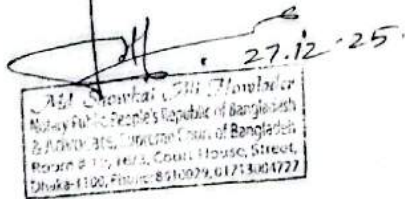 27.12.25
Md. Showkat Ali Howlader
Notary Public People's Republic of Bangladesh
& Advocate, Supreme Court of Bangladesh
Room Court House, Street,
Dhaka-1100, Phone: